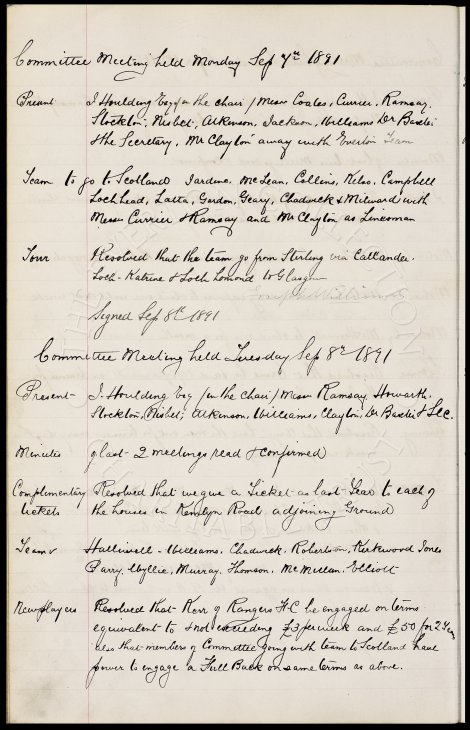 Committee Meeting held Monday Sep 7th 1891
Present J Houlding Esq (in the chair) Messrs Coates, Currier, Ramsay,
Stockton, Nisbet, Atkinson, Jackson, Williams Dr Baxter
& the Secretary, Mr Clayton away with Everton Team
Team to go to Scotland Jardine, McLean, Collins, Kelso, Campbell
Lochhead, Latta, Gordon, Geary, Chadwick & Milward with
Messrs Currier & Ramsay and Mr Clayton as Linesman
Tour Resolved that the team go from Stirling via Callander.
Loch-Katrine & Loch Lomond to Glasgow
Signed Sep 8th 1891
Committee Meeting held Tuesday Sep 8th 1891
Present - J. Houlding Esq (in the chair) Messrs Ramsay, Howarth,
Stockton, Nisbet, Atkinson, Williams, Clayton, Dr Baxter & Sec.
Minutes of last 2 meetings read & confirmed
Complimentary Resolved that we give a Ticket as last Year to each of
tickets the houses in Kemlyn Road adjoining Ground
Team v Halliwell - Williams, Chadwick, Robertson, Kirkwood Jones
Parry, Wyllie, Murray, Thomson, McMillan, Elliott
New players Resolved that Kerr of Rangers F.C be engaged on terms
equivalent to & not exceeding £3 per week and £50 for 2 Years
also that members of Committee going with team to Scotland have
power to engage a Full Back on same terms as above.